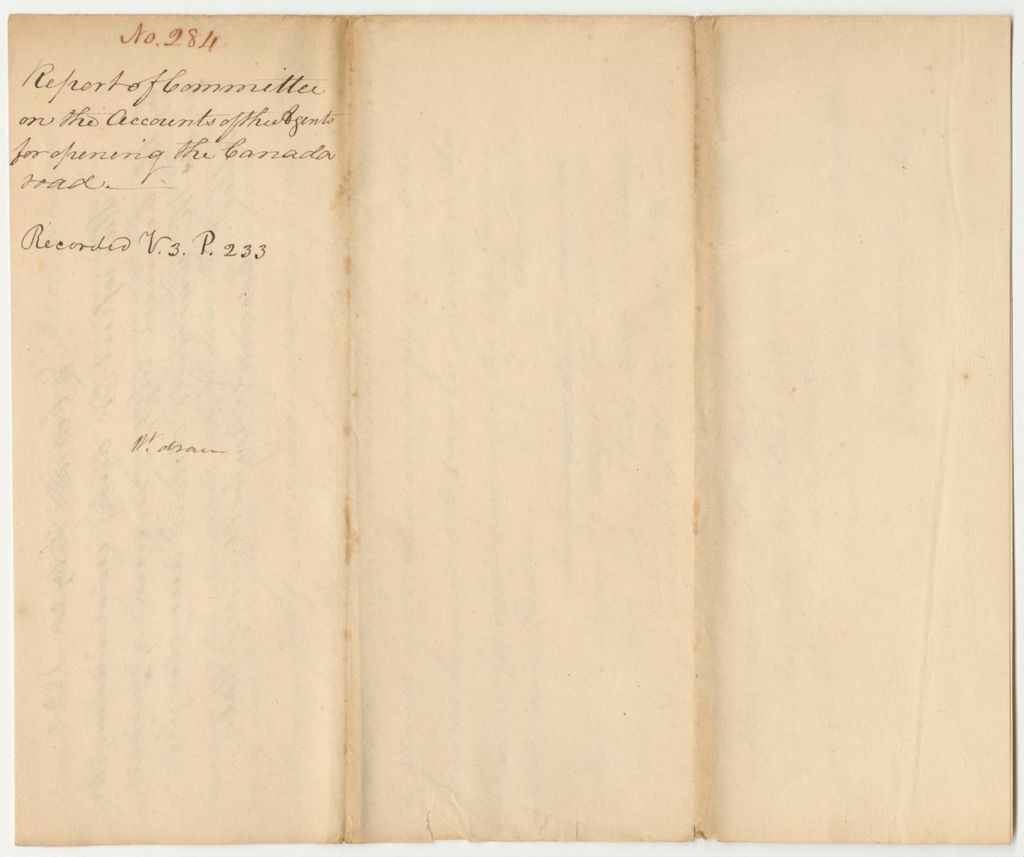 No. 284
Report of Committee
on the Accounts of the Agents
for opening the Canada
road.
Recorded V. 3. P. 233